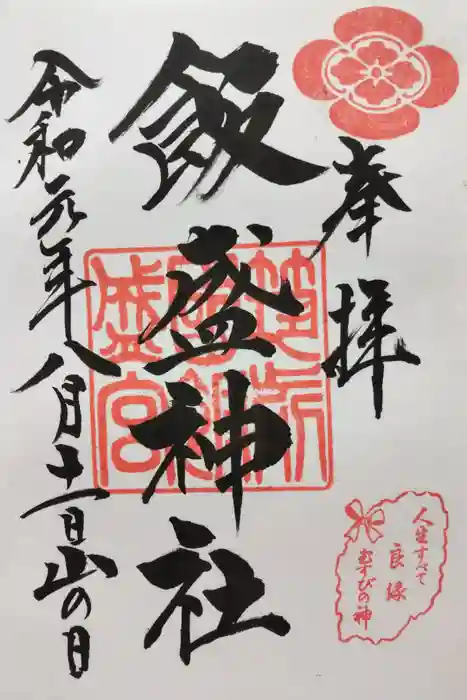 奉拝
飯盛神社
令和元年八月十一日山の日
筑前
國飯
盛宮
人生すべて
良縁
むすびの神